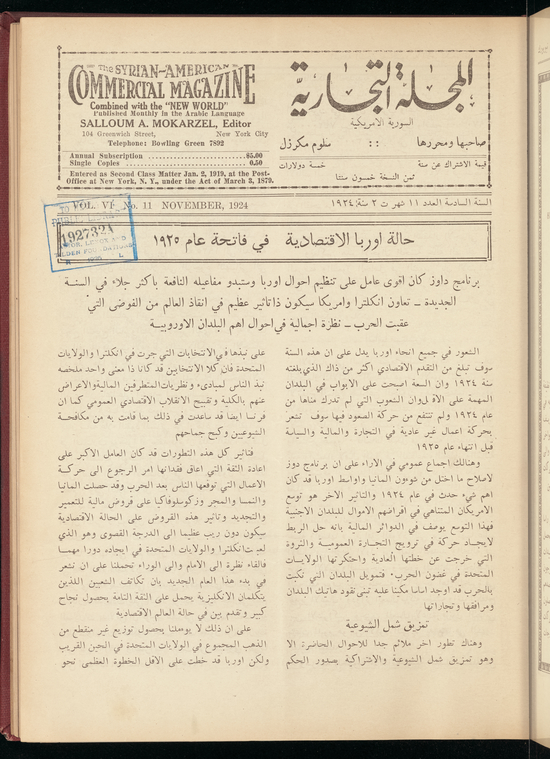 The SYRIAN-AMERICAN
COMMERCIAL MAGAZINE
Combined with the "NEW WORLD"
Published Monthly in the Arabic Language
SALLOUM A. MOKARZEL, Editor
104 Greenwich Street, New York City
Telephone: Bowling Green 7892
Annual Subscription $5.00
Single Copies 0.50
Entered as Second Class Matter Jan. 2, 1919, at the Post-
Office at New York, N. Y., under the Act of March 3, 1879.
المجلة التجارية
السورية الامريكية
صاحبها ومحررها :: سلوم مكرزل
قيمة الاشتراك عن سنة خمسة دولارات
ثمن النسخة خمسون سنتا
VOL. VI No. 11 NOVEMBER, 1924
السنة السادسة العدد ١١ شهر ت ٢ سنة ١٩٢٤
192732A
حالة اوربا الاقتصادية في فاتحة عام ١٩٢٥
برنامج داوز كان اقوى عامل على تنظيم احوال اوربا وستبدو مفاعيله النافعة باكثر جلاء في السنة
الجديدة ـ تعاون انكلترا وامريكا سيكون ذا تاثير عظيم في انقاذ العالم من الفوضى التي
عقبت الحرب ـ نظرة اجمالية في احوال اهم البلدان الاوروبية
الشعور في جميع انحاء اوربا يدل على ان هذه السنة
سوف تبلغ من التقدم الاقتصادي اكثر من ذاك الذي بلغته
سنة ١٩٢٤ وان السعة اصبحت على الابواب في البلدان
المهمة على الاقل وان الشعوب التي لم تدرك مناها من
عام ١٩٢٤ ولم تنتفع من حركة الصعود فيها سوف تشعر
بحركة اعمال غير عادية في التجارة والمالية والسياسة
قبل انتهاء عام ١٩٢٥
وهنالك اجماع عمومي في الاراء على ان برنامج دوز
لاصلاح ما اختل من شوءون المانيا واواسط اوربا قد كان
اهم شيء حدث في عام ١٩٢٤ والتاثير الاخر هو توسع
الامريكان المتناهي في اقراضهم الاموال للبلدان الاجنبية
فهذا التوسع يوصف في الدوائر المالية بانه حل الربط
لايجاد حركة في ترويج التجارة العمومية والثروة
التي خرجت عن خطتها العادية واحتكرتها الولايات
المتحدة في غضون الحرب. فتمويل البلدان التي نكبت
بالحرب قد اوجد اساسا مكينا عليه تبنى نقود هاتيك البلدان
ومرافقها وتجاراتها
تمزيق شمل الشيوعية
وهناك تطور اخر ملائم جدا للاحوال الحاضرة الا
وهو تمزيق شمل الشيوعية والاشتراكية بصدور الحكم
على نبذها في الانتخابات التي جرت في انكلترا والولايات
المتحدة فان كلا الانتخابين قد كانا ذا معنى واحد ملخصه
نبذ الناس لمبادىء ونظريات المتطرفين المالية والاعراض
عنهم بالكلية وتقبيح الانقلاب الاقتصادي العمومي كما ان
فرنسا ايضا قد ساعدت في ذلك بما قامت به من مكافحة
الشيوعيين وكبح جماحهم
فتاثير كل هذه التطورات قد كان العامل الاكبر على
اعادة الثقة التي اعاق فقدانها امر الرجوع الى حركة
الاعمال التي توقعها الناس بعد الحرب وقد حصلت المانيا
والنمسا والمجر وزكوسلوفاكيا على قروض مالية للتعمير
والتجديد وتاثير هذه القروض على الحالة الاقتصادية
سيكون دون ريب عظيما الى الدرجة القصوى وهو الذي
لعبت انكلترا والولايات المتحدة في ايجاده دورا مهما
فالقاء نظرة الى الامام والى الوراء تحملنا على ان نشعر
في بدء هذا العام الجديد بان تكاتف الشعبين اللذين
يتكلمان الانكليزية يحمل على الثقة التامة بحصول نجاح
كبير وتقدم بين في حالة العالم الاقتصادية
على ان ذلك لا يوءملنا بحصول توزيع غير منقطع من
الذهب المجموع في الولايات المتحدة في الحين القريب
ولكن اوربا قد خطت على الاقل الخطوة العظمى نحو